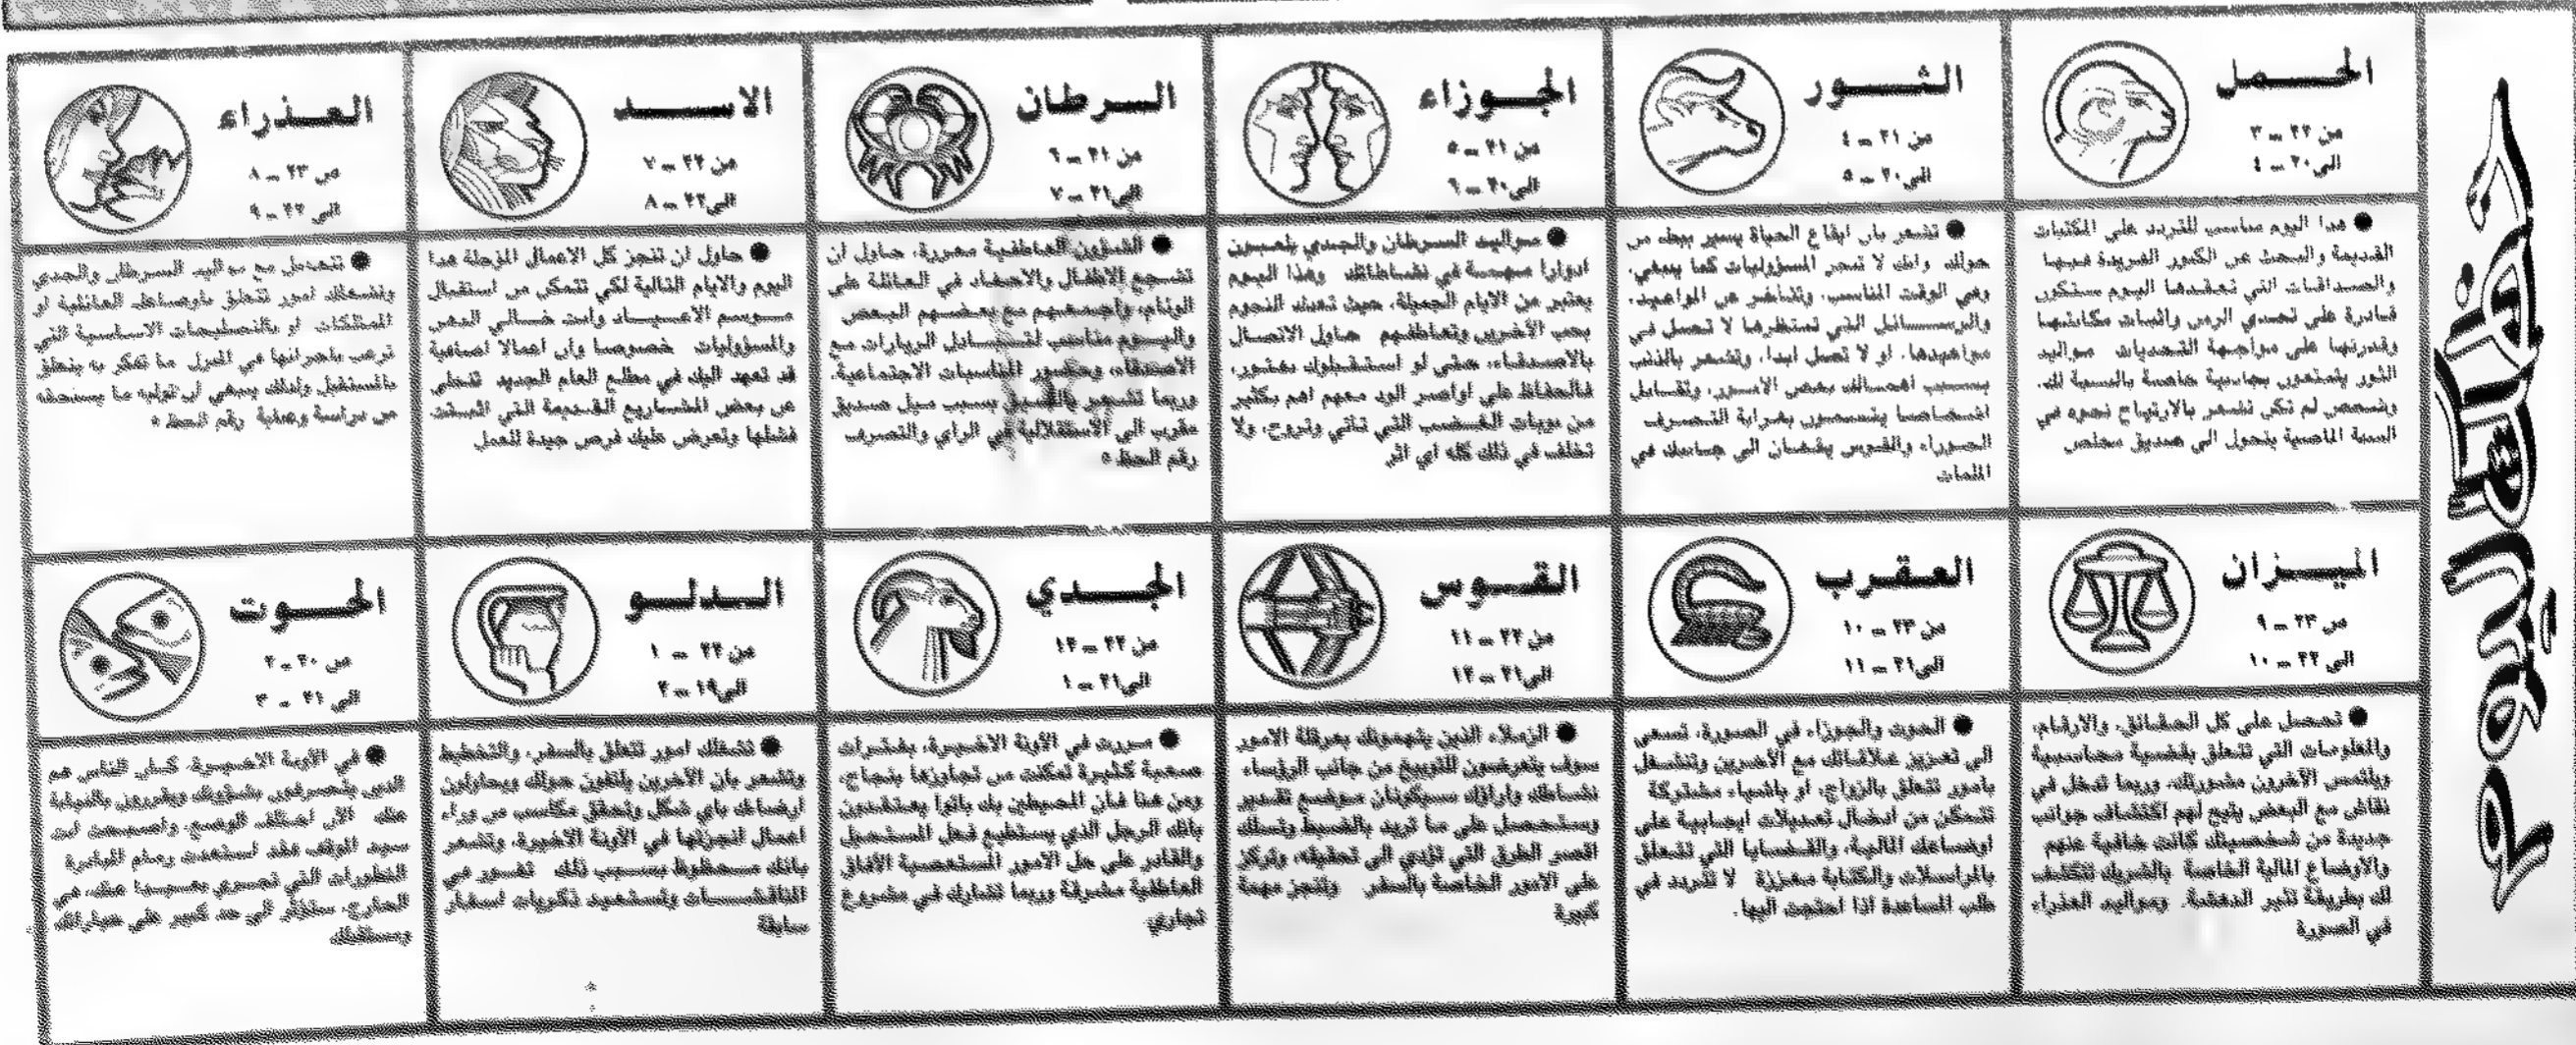 الحمل
من ٢٢ - ٣
الى ٢٠ - ٤
● هذا اليوم مناسب للتردد على المكتبات
القديمة والبحث عن الكنوز الفريدة فيها
والصداقات التي تعقدها اليوم ستكون
قادرة على تحدي الزمن واثبات مكانتها
وقدرتها على مواجهة التحديات مواليد
الثور يتمتعون بجاسية خاصة بالنسبة لك.
وشخص لم تكن تشعر بالارتياح نحوه في
السنة الماضية يتحول الى صديق مخلص
الثور
من ٢١ - ٤
الى ٢٠ - ٥
● تشعر بان ايقاع الحياة يسير ببطء من
حولك وانك لا تنجز المسؤوليات كما ينبغي.
وفي الوقت المناسب. وتتأخر عن المواعيد.
والرسائل التي تنتظرها لا تصل في
مواعيدها. او لا تصل ابدا. وتشعر بالذنب
بسبب اهمالك بعض الامور. وتقابل
اشخاصا يتسمون بغرابة التصرف
الجوزاء والقوس يقفان الى جانبك في
الجوزاء
من ٢١ - ٥
الى ٢٠ - ٦
● مواليد السرطان والجدي يلعبون
ادوارا مهمة في نشاطاتك وهذا اليوم
يعتبر من الايام الجميلة، حيث تعدك النجوم
بحب الآخرين وتعاطفهم حاول الاتصال
بالاصدقاء، حتى لو استقبلوك بفتور،
فالحفاظ على اواصر الود معهم اهم بكثير
من نوبات الغضب التي تأتي وتروح، ولا
تخلف في ذلك كله اي اثر
السرطان
من ٢١ - ٦
الى ٢١ - ٧
● الشؤون العاطفية معززة، حاول ان
تشجع الاطفال والاحفاد في العائلة على
الوئام، واجمعهم مع بعضهم البعض
واليوم مناسب لتبادل الزيارات مع
الاصدقاء، وحضور المناسبات الاجتماعية.
وربما تشعر بالضيق بسبب ميل صديق
مقرب الى الاستقلالية في الرأي والتصرف
رقم الحظ ٥
الاسد
من ٢٢ - ٧
الى ٢٢ - ٨
● حاول ان تنجز كل الاعمال المؤجلة هذا
اليوم والايام التالية لكي تتمكن من استقبال
موسم الاعياد وانت خالي الذهن
والمسؤوليات خصوصا وان اعمالا اضافية
قد تعهد اليك في مطلع العام الجديد تتخلى
عن بعض المشاريع القديمة التي اثبتت
فشلها وتعرض عليك فرص جيدة للعمل
العذراء
من ٢٣ - ٨
الى ٢٢ - ٩
● تتعامل مع مواليد السرطان والجدي
وتشغلك امور تتعلق باوضاعك العائلية او
الممتلكات او بالتصليحات الاساسية التي
ترغب باجرائها في المنزل ما تفكر به يتعلق
بالمستقبل ولذلك ينبغي ان توليه ما يستحقه
من دراسة وعناية رقم الحظ ٥
الميزان
من ٢٣ - ٩
الى ٢٢ - ١٠
● تحصل على كل الحقائق، والارقام،
والمعلومات التي تتعلق بقضية محاسبية
ويلتمس الآخرون مشورتك، وربما تدخل في
نقاش مع البعض يتيح لهم اكتشاف جوانب
جديدة من شخصيتك كانت خافية عنهم
والاوضاع المالية الخاصة بالشريك تتكشف
لك بطريقة تثير الدهشة. ومواليد العذراء
في الصورة
العقرب
من ٢٣ - ١٠
الى ٢١ - ١١
● الحوت والجوزاء في الصورة، تسعى
الى تعزيز علاقاتك مع الآخرين وتنشغل
بامور تتعلق بالزواج، او باشياء مشتركة
تتمكن من ادخال تعديلات ايجابية على
اوضاعك المالية، والقضايا التي تتعلق
بالمراسلات والكتابة معززة لا تتردد في
طلب المساعدة اذا احتجت اليها.
القوس
من ٢٢ - ١١
الى ٢١ - ١٢
● الزملاء الذين يتهمونك بعرقلة الامور
سوف يتعرضون للتوبيخ من جانب الرؤساء
نشاطك واراؤك سيكونان موضع تقدير
وستحصل على ما تريد بالضبط وتسلك
اقصر الطرق التي تؤدي الى تحقيقه، وتركز
على الامور الخاصة بالسفر وتنجز مهمة
كبيرة
الجدي
من ٢٢ - ١٢
الى ٢١ - ١
● مررت في الآونة الاخيرة، بفترات
صعبة كثيرة تمكنت من تجاوزها بنجاح،
ومن هنا فان المحيطين بك باتوا يعتقدون
بانك الرجل الذي يستطيع فعل المستحيل
والقادر على حل الامور المستعصية الآفاق
العاطفية مشرقة وربما تشارك في مشروع
تجاري
الدلو
من ٢٢ - ١
الى ١٩ - ٢
● تشغلك امور تتعلق بالسفر، والتخطيط
وتشعر بان الآخرين يلتفون حولك ويحاولون
ارضاءك باي شكل وتحقق مكاسب من وراء
اعمال انجزتها في الآونة الاخيرة، وتشعر
بانك محظوظ بسبب ذلك تفوز في
المناقشات وتستعيد ذكريات اسفار
سابقة
الحوت
من ٢٠ - ٢
الى ٢١ - ٣
● في الآونة الاخيرة، كان الناس هم
الذين يتصرفون بشؤونك ويقررون بالنيابة
عنك الآن اختلف الوضع، واصبحت انت
سيد الموقف فقد استعدت زمام المبادرة
التطورات التي تجري بعيدا عنك، في
الخارج، ستؤثر الى حد كبير على خياراتك
ومستقبلك